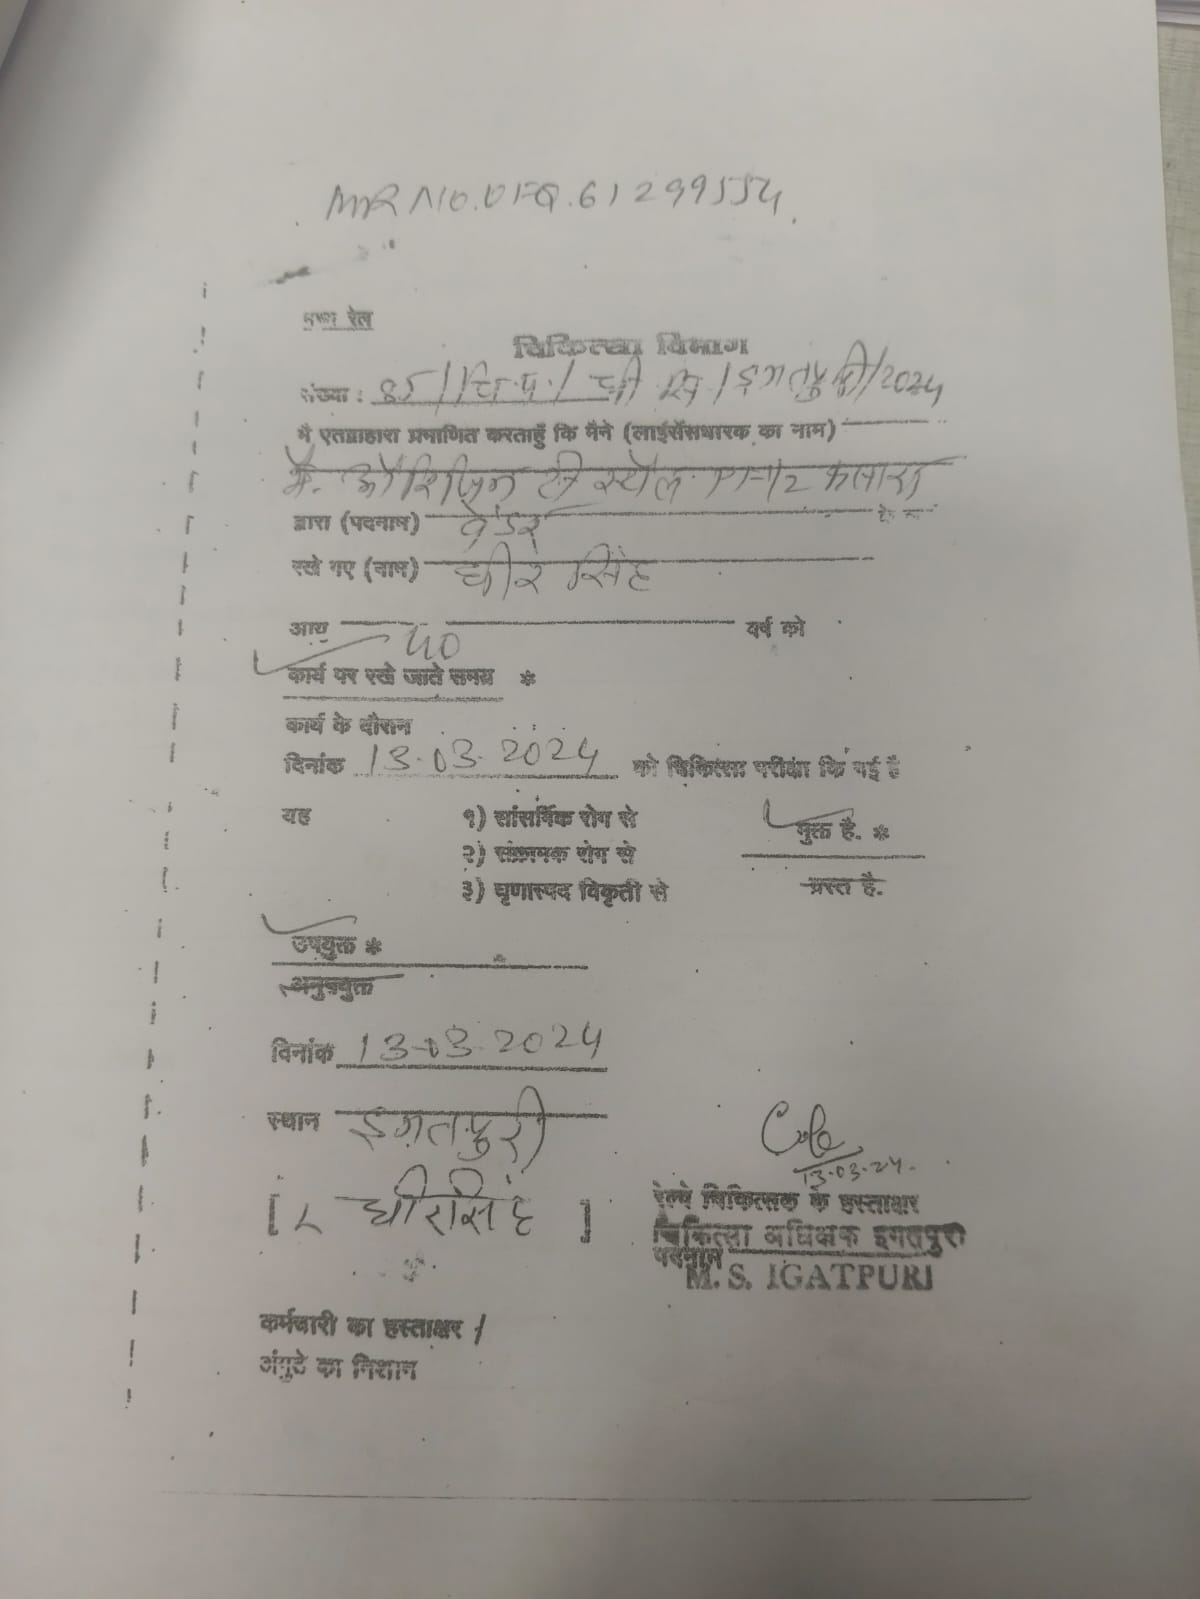 MR NO. UFQ. 61299554.
मध्य रेल
चिकित्सा विभाग
संख्या : 85 / चि.प. / ची सि / इगतपुरी / 2024
मै एतद्वाहारा प्रमाणित करताहुँ कि मैने (लाईसेंसधारक का नाम)
मे. ओरिजिन टी स्टॉल PF-1/2 कसारा
द्वारा (पदनाम) वेंडर के रूप
रखे गए (नाम) धीर सिंह
आयु 40 वर्ष को
कार्य पर रखे जाते समय *
कार्य के दौरान
दिनांक 13.03.2024 को चिकित्सा परीक्षा कि गई है
यह १) सांसर्गिक रोग से मुक्त है. *
२) संक्रामक रोग से
३) घृणास्पद विकृती से ग्रस्त है.
उपयुक्त *
अनुपयुक्त
दिनांक 13-03-2024
स्थान इगतपुरी
13.03.24.
[ धीरसिंह ]
रेल्वे चिकित्सक के हस्ताक्षर
चिकित्सा अधिक्षक इगतपुरी
पदनाम
M. S. IGATPURI
कर्मचारी का हस्ताक्षर /
अंगुठे का निशान